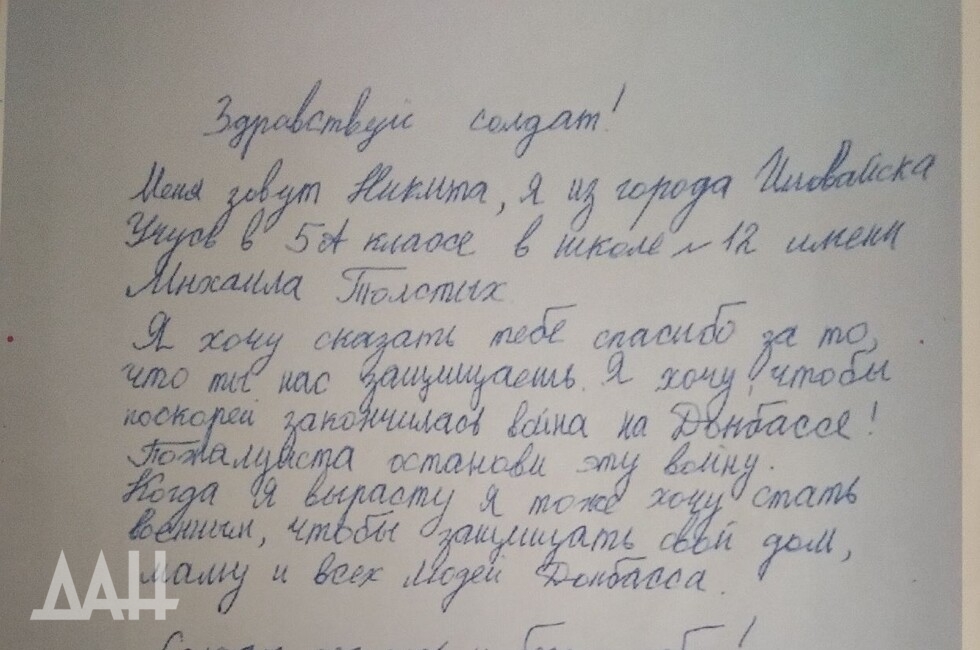 Здравствуй солдат!
Меня зовут Никита, я из города Иловайска
Учусь в 5А классе в школе № 12 имени
Михаила Толстых
Я хочу сказать тебе спасибо за то,
что ты нас защищаешь. Я хочу, чтобы
поскорей закончилась война на Донбассе!
Пожалуйста останови эту войну.
Когда я вырасту я тоже хочу стать
военным, чтобы защищать свой дом,
маму и всех людей Донбасса.
ДАН